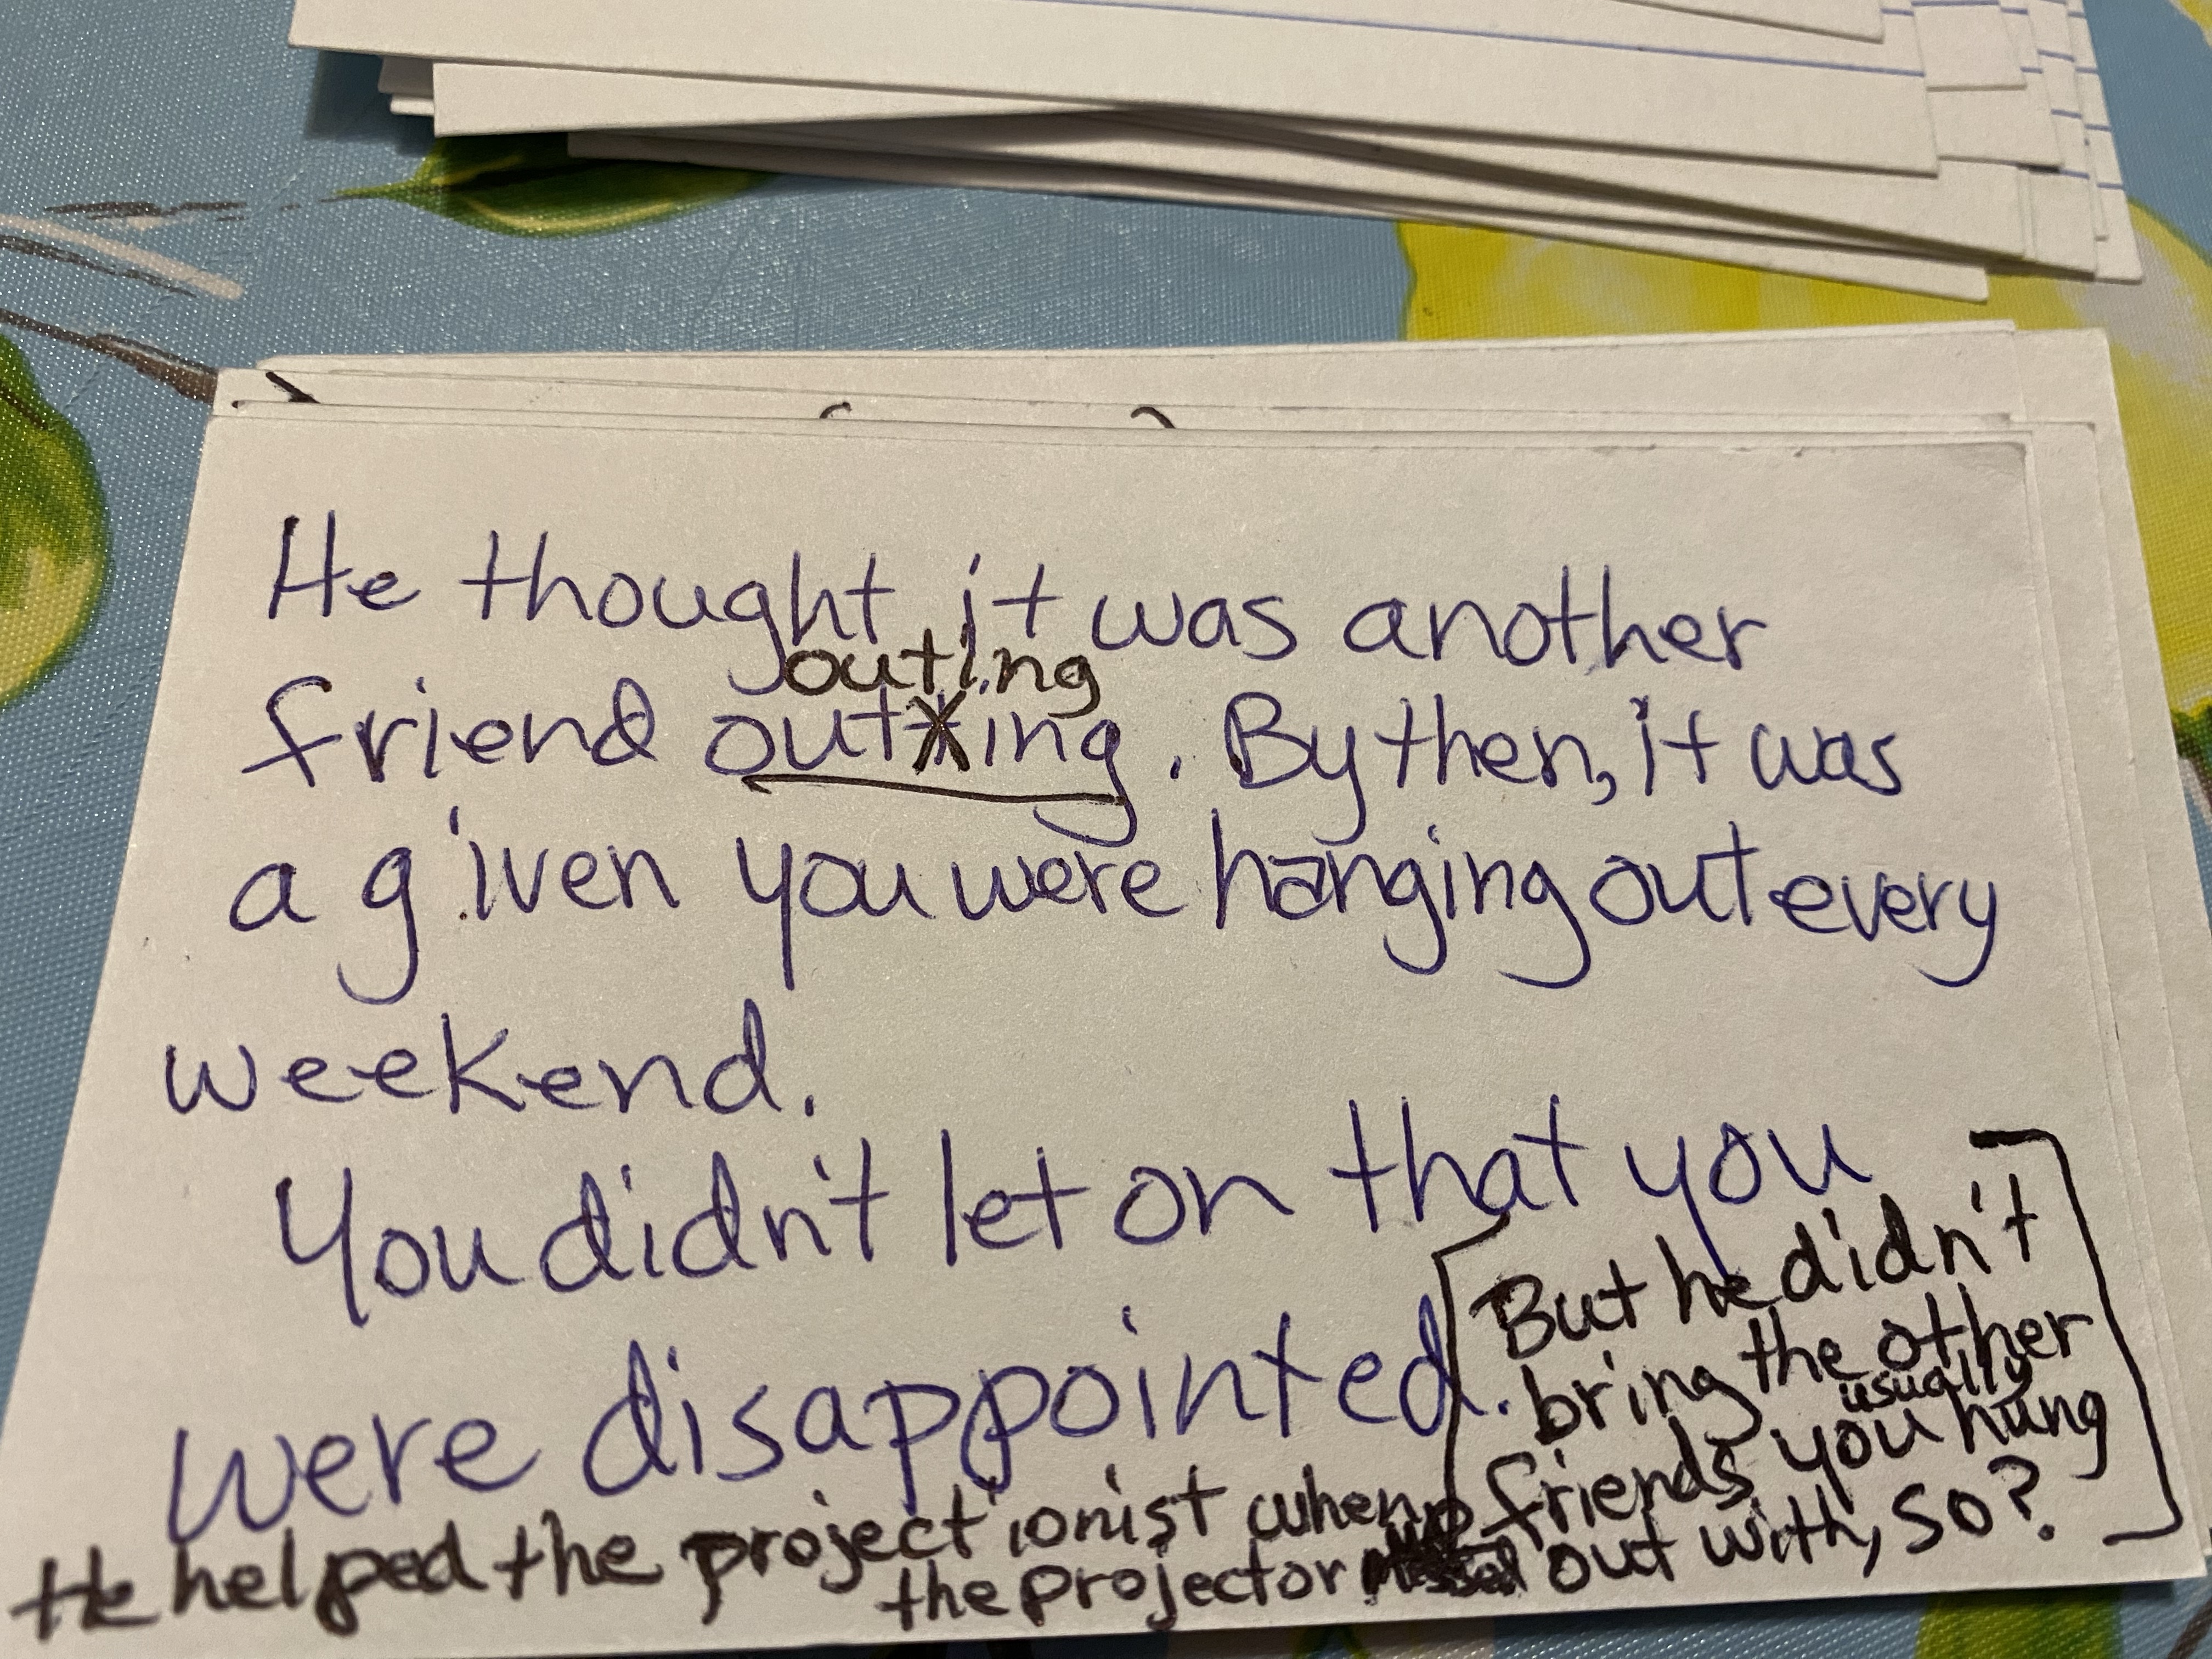 He thought it was another
outing
friend outting. By then, it was
a given you were hanging out every
weekend.
You didn't let on that you
were disappointed.
[But he didn't
bring the other
usually
friends you hung
out with, so?]
He helped the projectionist when
the projector